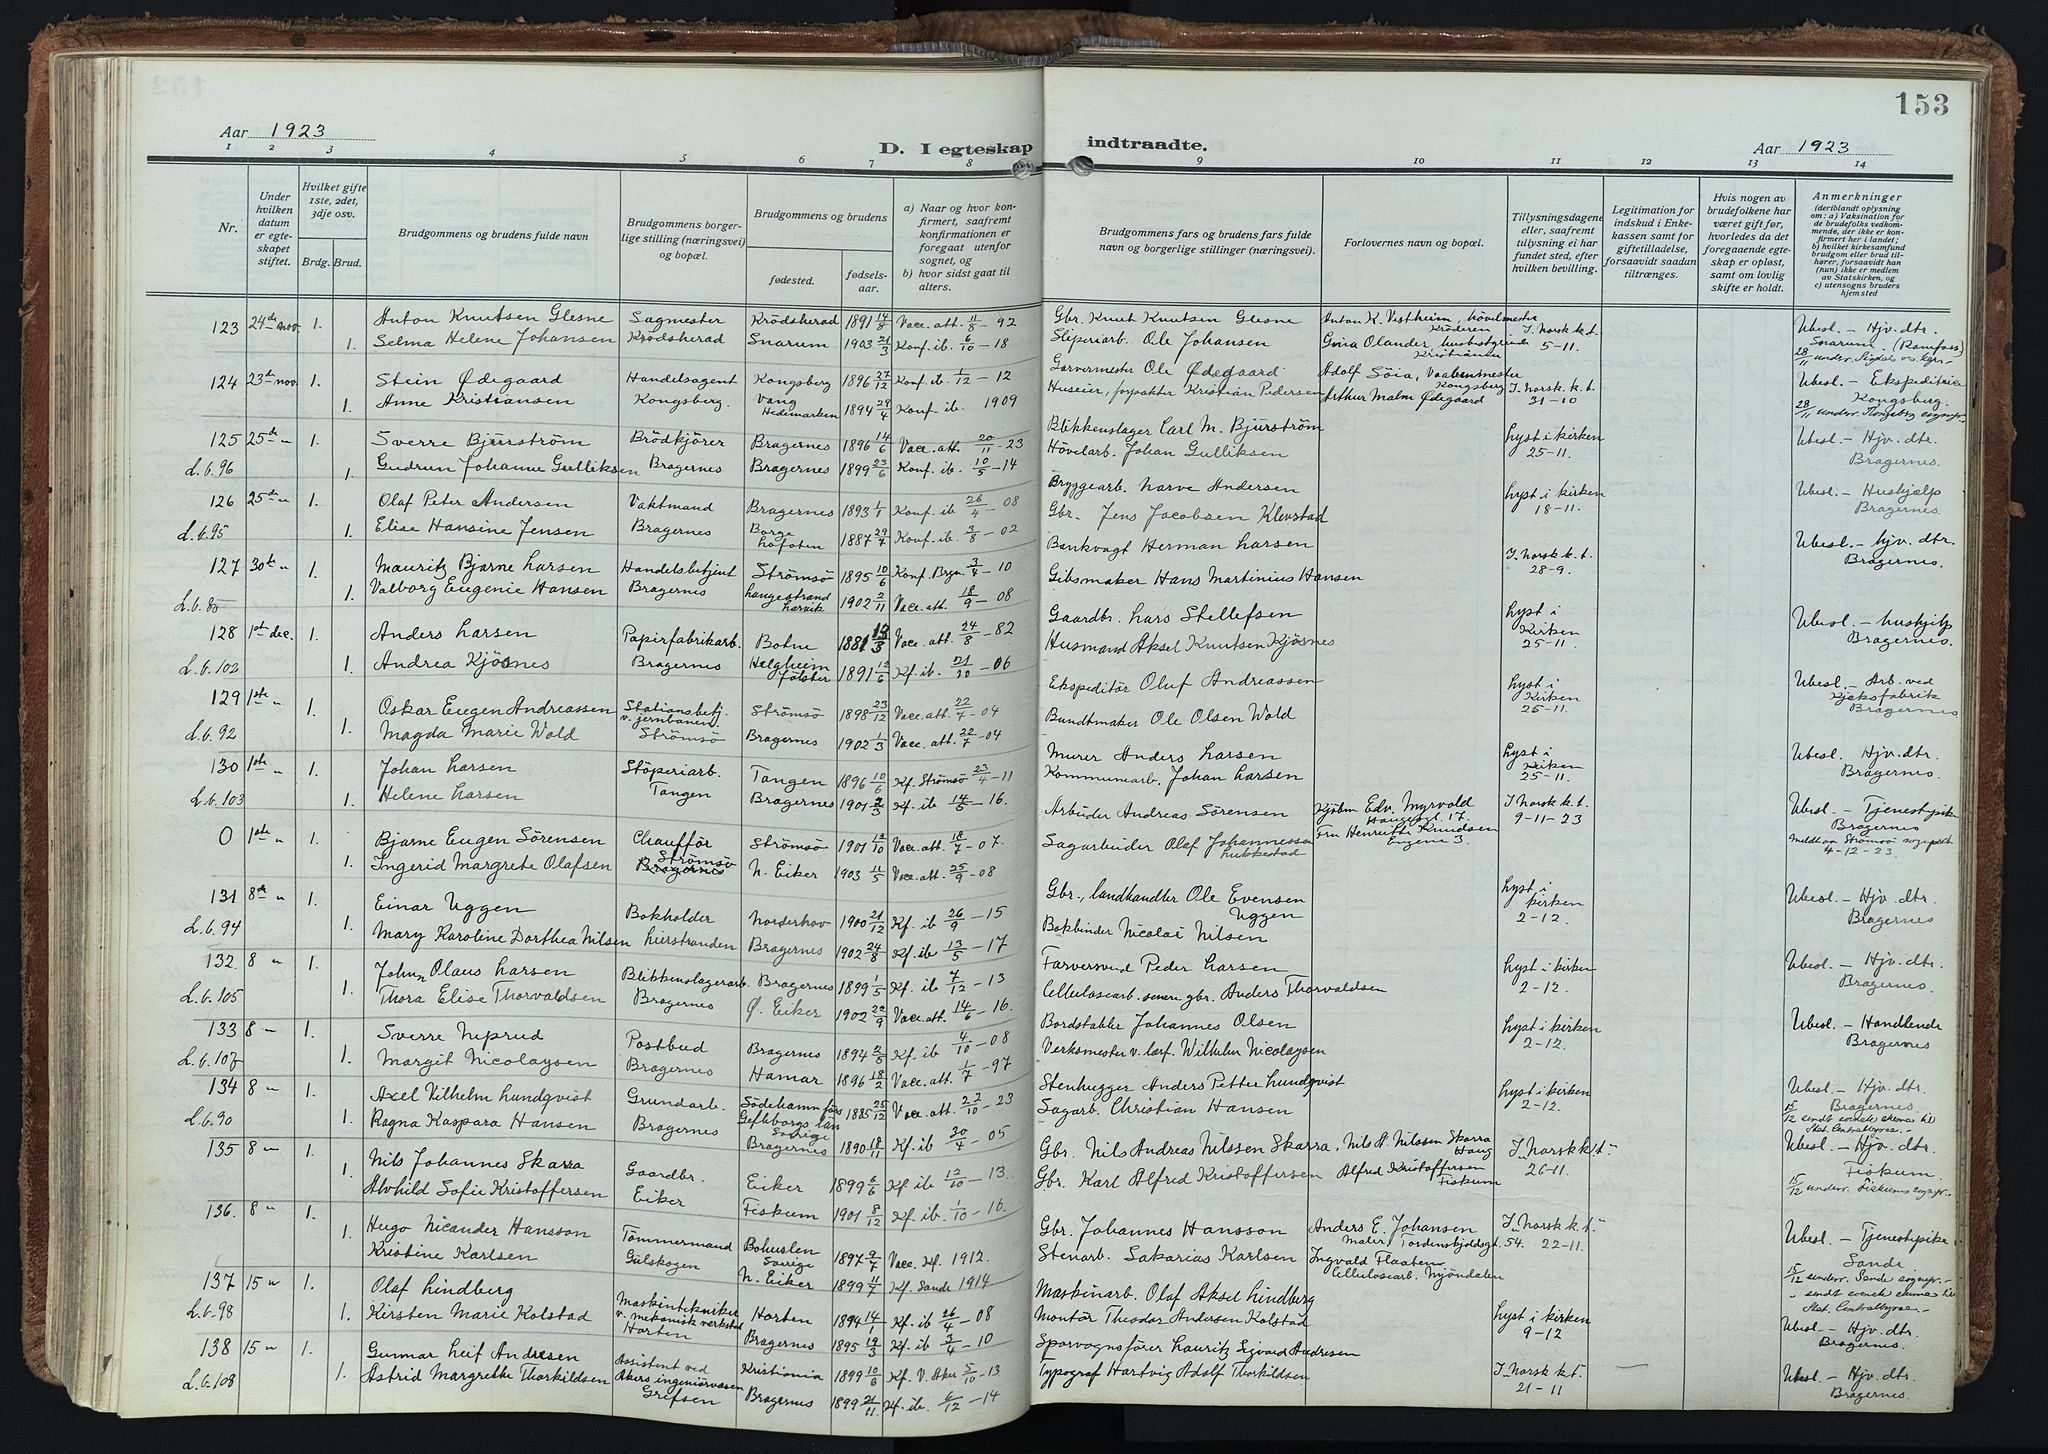 153
Aar 1923
D. I egteskap indtraadte.
Aar 1923
1 2 3 4 5 6 7 8 9 10 11 12 13 14
Nr.
Under hvilken datum er egteskapet stiftet.
Hvilket gifte 1ste, 2det, 3dje osv.
Brdg. Brud.
Brudgommens og brudens fulde navn
Brudgommens borgerlige stilling (næringsvei) og bopæl.
Brudgommens og brudens
fødested.
fødselsaar.
a) Naar og hvor konfirmert, saafremt konfirmationen er foregaat utenfor sognet, og
b) hvor sidst gaat til alters.
Brudgommens fars og brudens fars fulde navn og borgerlige stillinger (næringsvei).
Forlovernes navn og bopæl.
Tillysningsdagene eller, saafremt tillysning ei har fundet sted, efter hvilken bevilling.
Legitimation for indskud i Enkekassen samt for giftetilladelse, forsaavidt saadan tiltrænges.
Hvis nogen av brudefolkene har været gift før, hvorledes da det foregaaende egteskap er opløst, samt om lovlig skifte er holdt.
Anmerkninger
(deriblandt oplysning om: a) Vaksination for de brudefolks vedkommende, der ikke er konfirmert her i landet; b) hvilket kirkesamfund brudgom eller brud tilhører, forsaavidt han (hun) ikke er medlem av Statskirken, og c) utensogns bruders hjemsted
123 24de nov. 1. Anton Knutsen Glesne Sagmester Krødsherad 1891 14/8 Vacc. att. 11/8 – 92 Gbr. Knut Knutsen Glesne Anton K. Vestheim, høvelmester Krøderen J. Norsk k. t. 5-11. Ubesl. – Hjv. dtr.
1. Selma Helene Johansen Krødsherad Snarum 1903 21/3 Konf. ib. 6/10 – 18 Sliperiarb. Ole Johansen Kristiania Snarum.
124 23de nov. 1. Stein Ødegaard Handelsagent Kongsberg 1896 27/12 Konf. ib. 1/12 – 12 Garvermester Ole Ødegaard Adolf Söia, Vaabenmester Kongsberg J. Norsk k. t. 31-10 Ubesl. – Ekspeditrice
1. Anne Kristiansen Kongsberg. Vang Hedemarken 1894 29/4 Konf. ib. 1909 Huseier, forpakter Kristian Pedersen Arthur Malm Ødegaard Kongsberg.
125 25de " 1. Sverre Bjurström Brödkjører Bragernes 1896 14/6 Vacc. att. 20/11 – 23 Blikkenslager Carl M. Bjurström Lyst i kirken 25-11. Ubesl. – Hjv. dtr.
L.b. 96 1. Gudrun Johanne Gulliksen Bragernes Bragernes 1899 23/6 Konf. ib. 10/5 – 14 Hövelarb. Johan Gulliksen Bragernes.
126 25de " 1. Olaf Peter Andersen Vaktmand Bragernes 1893 1/1 Konf. ib 26/4 – 08 Bryggearb. Narve Andersen Lyst i kirken 18-11. Ubesl. – Hushjælp
L.b. 95 1. Elise Hansine Jensen Bragernes Borge Lofoten 1887 29/7 Konf. ib. 3/8 – 02 Gbr. Jens Jacobsen Klevstad Bragernes.
127 30te " 1. Mauritz Bjarne Larsen Handelsbetjent Strømsø 1895 10/6 Konf. Bragn. 3/4 – 10 Bankvagt Herman Larsen J. Norsk k. t. 28-9. Ubesl. – Hjv. dtr.
L.b. 85 1. Valborg Eugenie Hansen Bragernes Langestrand Larvik 1902 2/11 Vacc. att. 18/9 – 08 Gibsmaker Hans Martinius Hansen Bragernes.
128 1ste dec. 1. Anders Larsen Papirfabrikarb. Botne 1881 13/3 Vac. att. 24/8 – 82 Gaardbr. Lars Stellefsen Lyst i Kirken 25-11. Ubesl. – hushjelp
L.b. 102 1. Andrea Kjösnes Bragernes Helgheim Jølster 1891 12/6 Kf. ib. 21/20 – 06 Husmand Aksel Knutsen Kjösnes Bragernes.
129 1ste " 1. Oskar Eugen Andreassen Stationsbetj. v. jernbanen. Strømsø 1898 23/12 Vacc. att. 22/4 – 04 Ekspeditör Oluf Andreassen Lyst i Kirken 25-11. Ubesl. – Arb. ved Kjeksfabrik
L.b. 92 1. Magda Marie Wold Strömsö Bragernes 1902 1/3 Vacc. att. 22/7 – 04 Bundtmaker Ole Olsen Wold Bragernes
130 1ste " 1. Johan Larsen Stöperiarb. Tangen 1896 10/6 Kf. Strømsø 23/4 – 11 Murer Anders Larsen Lyst i Kirken 25-11. Ubesl. – Hjv. dtr.
L.b. 103 1. Helene Larsen Tangen Bragernes 1901 2/3 Kf. ib 14/5 – 16. Kommunearb. Johan Larsen Bragernes.
0 1ste " 1. Bjarne Eugen Sörensen Chauffør Strömsö 1901 12/10 Vacc. att. 18/7 – 07. Arbeider Andreas Sörensen Kjøbm Edv. Myrvold Haugesgt. 17. J. Norsk k. t. 9-11-23 Ubesl. – Tjenestepike Bragernes
1. Ingerid Margrete Olafsen Strömsö Bragernes N. Eiker 1903 11/5 Vacc. att. 25/9 – 08 Sagarbeider Olaf Johannessen Lukkestad Fru Henriette Knudsen Eugene 3. meldt ... Strömsö sognepr. 4-12-23.
131 8de " 1. Einar Uggen Bokholder Norderhov 1900 21/12 Kf. ib 26/9 – 15 Gbr., landhandler Ole Evensen Uggen Lyst i kirken 2-12. Ubesl. – Hjv. dtr.
L.b. 94 1. Mary Karoline Dorthea Nilsen Lierstranden Bragernes 1902 24/8 Kf. ib. 13/5 – 17 Bokbinder Nicolai Nilsen Bragernes
132. 8 " 1. Johan Olaus Larsen Blikkenslagerarb. Bragernes 1899 1/5 Kf. ib. 7/12 – 13 Farversvend Peder Larsen Lyst i kirken 2-12. Ubesl. – Hjv. dtr.
L.b. 105 1. Thora Elise Thorvaldsen Bragernes Ø. Eiker 1902 22/9 Vacc. att. 14/6 – 16. Cellulosearb. senere gbr. Anders Thorvaldsen Bragernes.
133 8 " 1. Sverre Neprud Postbud Bragernes 1894 2/5 Kf. ib 4/10 – 08 Bordstabler Johannes Olsen Lyst i kirken 2-12. Ubesl – Handlende
L.b. 107 1. Margit Nicolaysen Bragernes Hamar 1896 18/2 Vacc. att. 1/7 – 97 Verksmester v. larf. Wilhelm Nicolaysen Bragernes
134 8 " 1. Axel Vilhelm Lundqvist Grundarb. Södehamn förs. Gefleborgs län Sverige 1885 25/12 Vacc. att. 22/10 – 23 Stenhugger Anders Petter Lundqvist Lyst i kirken 2-12. Ubesl – Hjv. dtr.
L.b. 90 1. Ragna Kaspara Hansen Bragernes Bragernes 1890 18/11 Kf. ib 30/4 – 05 Sagarb. Christian Hansen Bragernes 15/12 sendt svenske skema til Stat. Centralbyraa.
135 8 " 1. Nils Johannes Skarra Gaardbr. Eiker 1899 6/6 Kf. ib 12/10 – 13. Gbr. Nils Andreas Nilssen Skarra, Nils A. Nilssen Skarra Haug J. Norsk k. t. 26-11. Ubesl. – Hjv. dtr.
1. Alvhild Sofie Kristoffersen Eiker Fiskum 1901 8/12 Kf. ib. 1/10 – 16. Gbr. Karl Alfred Kristoffersen Alfred Kristoffersen Fiskum Fiskum 15/12 underr. Fiskums sognepr.
136. 8 " 1. Hugo Nicander Hansson Tømmermand Bohuslen Sverige 1897 9/7 Vacc. Kf. 1912. Gbr. Johannes Hansson Anders E. Johansen Maler Tordenskjoldsgt. 54. J. Norsk k. t. 22-11. Ubesl. – Tjenestepike
1 Kristine Karlsen Gulskogen N. Eiker 1899 11/7 Kf. Sande 1914 Stenarb. Sakarias Karlsen Ingvald Flaaten Cellulosearb. Mjöndalen Sande 15/12 underr. Sande sognepr. sendt svenske skema til Stat. Centralbyraa
137 15 " 1. Olaf Lindberg Maskintekniker v. mekanisk verksted Horten 1894 14/1 Kf. ib 26/4 – 08 Maskinarb. Olaf Aksel Lindberg Lyst i kirken 9-12 Ubesl – Hjv. dtr.
L.b. 98 1. Kirsten Marie Kolstad Horten Bragernes 1895 19/3 Kf. ib 3/4 – 10 Montør Theodor Andersen Kolstad Bragernes.
138 15 " 1. Gunnar Leif Andresen Assistent ved Akers ingeniørvæsen Kristiania 1899 10/6 Kf. V. Aker 5/10 – 13 Sporvognsfører Lauritz Sigvard Andresen J. Norsk k. t. 21-11 Ubesl – Hjv. dtr.
L.b. 108 1. Astrid Margrethe Thorkildsen Grefsen Bragernes 1899 21/11 Kf. ib. 6/12 – 14 Typograf Hartvig Adolf Thorkildsen Bragernes.